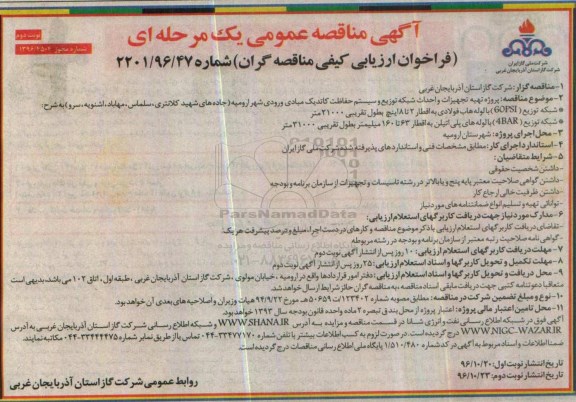 نوبت دوم
شماره مجوز: ۱۳۹۶.۴۵۰۴
آگهی مناقصه عمومی یک مرحله ای
(فراخوان ارزیابی کیفی مناقصه گران) شماره ۲۲۰۱/۹۶/۴۷
شرکت ملی گاز ایران
شرکت گاز استان آذربایجان غربی
۱-مناقصه گزار: شرکت گاز استان آذربایجان غربی
۲-موضوع مناقصه: پروژه تهیه تجهیزات و احداث شبکه توزیع و سیستم حفاظت کاتدیک مبادی ورودی شهر ارومیه (جاده های شهید کلانتری، سلماس، مهاباد، اشنویه، سرو) به شرح:
* شبکه توزیع (60PSI) با لوله های فولادی به اقطار ۲ تا ۸ اینچ بطول تقریبی ۲۱۰۰۰ متر
* شبکه توزیع (4BAR) با لوله های پلی اتیلن به اقطار ۶۳ تا ۱۶۰ میلیمتر بطول تقریبی ۳۱۰۰۰ متر
۳- محل اجرای پروژه: شهرستان ارومیه
۴- استاندارد اجرای کار: مطابق مشخصات فنی و استانداردهای پذیرفته شده شرکت ملی گاز ایران
۵- شرایط متقاضیان:
-داشتن شخصیت حقوقی
-داشتن گواهی صلاحیت معتبر پایه پنج و یا بالاتر در رشته تاسیسات و تجهیزات از سازمان برنامه و بودجه
-داشتن ظرفیت خالی ارجاع کار
-توانائی تهیه و تسلیم انواع ضمانتنامه های مورد نیاز
۶-مدارک مورد نیاز جهت دریافت کاربرگهای استعلام ارزیابی:
-تقاضای دریافت کاربرگهای استعلام ارزیابی با ذکر موضوع مناقصه و کارهای در دست اجرا، مبلغ و درصد پیشرفت هر یک.
-گواهی نامه صلاحیت رتبه معتبر از سازمان برنامه و بودجه در رشته مربوطه
۷-مهلت دریافت کاربرگهای استعلام ارزیابی: ۱۰ روز پس از انتشار آگهی نوبت دوم
۸-مهلت تکمیل و تحویل کاربرگها و اسناد استعلام ارزیابی: ۲۵ روز پس از انتشار آگهی نوبت دوم
۹- محل دریافت و تحویل کاربرگها و اسناد استعلام ارزیابی: دفتر امور قراردادها واقع در ارومیه، خیابان مولوی، شرکت گاز استان آذربایجان غربی، طبقه اول، اتاق ۱۰۲ می باشد، بدیهی است
متعاقبا دعوتنامه کتبی جهت دریافت مابقی اسناد مناقصه به مناقصه گران حائز شرایط ارسال خواهد شد.
۱۰- نوع و مبلغ تضمین شرکت در مناقصه: مطابق مصوبه شماره ۱۲۳۴۰۲/ت۵۰۶۵۹ه مورخ ۹۴/۹/۲۲ هیات وزیران و اصلاحیه های بعدی آن خواهد بود.
۱۱- محل تامین اعتبار مالی پروژه: اعتبار پروژه از محل بندق تبصره ۲ ماده واحده قانون بودجه سال ۱۳۹۳ خواهد بود.
آگهی فوق در شبکه اطلاع رسانی نفت و انرژی شانا در قسمت مناقصه و مزایده به آدرس WWW.SHANA.IR و شبکه اطلاع رسانی شرکت گاز استان آذربایجان غربی به آدرس
WWW.NIGC-WAZAR.IR درج گردیده است. در صورت لزوم به کسب اطلاعات بیشتر با تلفن شماره ۳۳۴۷۷۱۷۰-۰۴۴ تماس یا از طریق نمابر شماره ۳۳۴۴۴۴۷۵-۰۴۴ مکاتبه نمایند.
ضمنا اطلاعات و اسناد مربوط به آگهی در کد شماره ۱/۵۱۰/۴۸۰ پایگاه ملی اطلاع رسانی مناقصات درج گردیده است.
تاریخ انتشار نوبت اول: ۹۶/۱۰/۲۰
تاریخ انتشار نوبت دوم: ۹۶/۱۰/۲۳
روابط عمومی شرکت گاز استان آذربایجان غربی
ParsNamadData